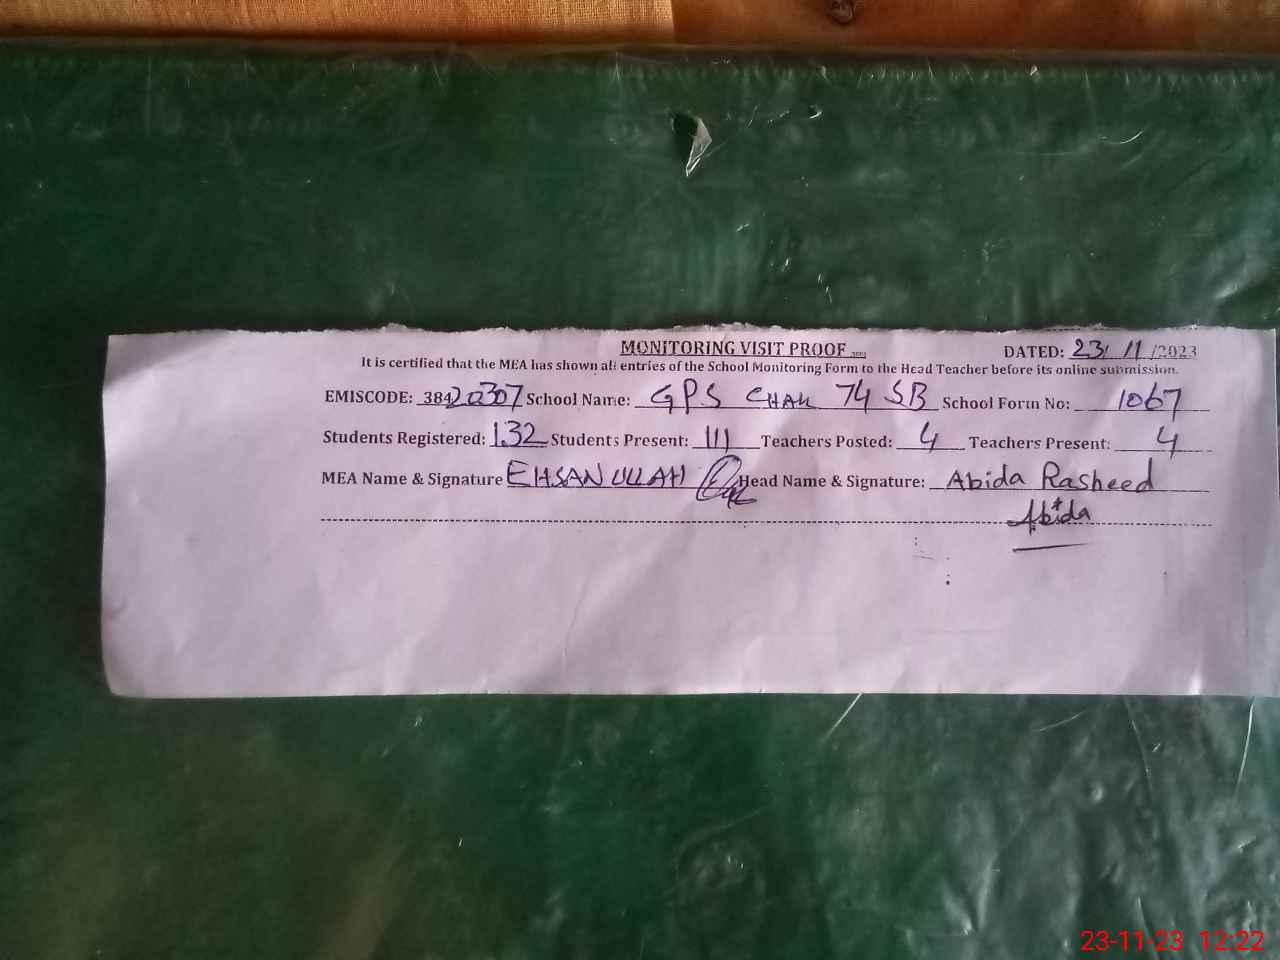 MONITORING VISIT PROOF DATED: 23/11/2023
It is certified that the MEA has shown all entries of the School Monitoring Form to the Head Teacher before its online submission.
EMISCODE: 38420307 School Name: GPS CHAK 74 SB School Form No: 1067
Students Registered: 132 Students Present: 111 Teachers Posted: 4 Teachers Present: 4
MEA Name & Signature EHSAN ULLAH Head Name & Signature: Abida Rasheed
Abida
23-11-23 12:22